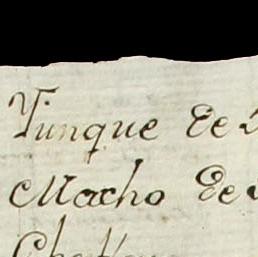 Yunque de
Macho de